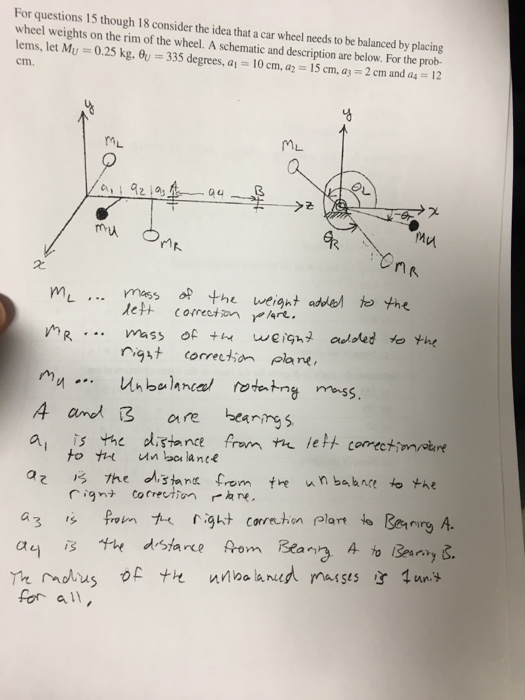 For questions 15 though 18 consider the idea that a car wheel needs to be balanced by placing
wheel weights on the rim of the wheel. A schematic and description are below. For the prob-
lems, let MU = 0.25 kg, θU = 335 degrees, a1 = 10 cm, a2 = 15 cm, a3 = 2 cm and a4 = 12
cm.
y
y
mL
mL
a1 a2 a3 A a4 B
θL
z
x
mu
mR
θR
mu
mR
x
mL ... mass of the weight added to the
left correction plane.
mR ... mass of the weight added to the
right correction plane.
mu ... Unbalanced rotating mass.
A and B are bearings.
a1 is the distance from the left correction plane
to the unbalance
a2 is the distance from the unbalance to the
right correction plane.
a3 is from the right correction plane to Bearing A.
a4 is the distance from Bearing A to Bearing B.
The radius of the unbalanced masses is 1 unit
for all.